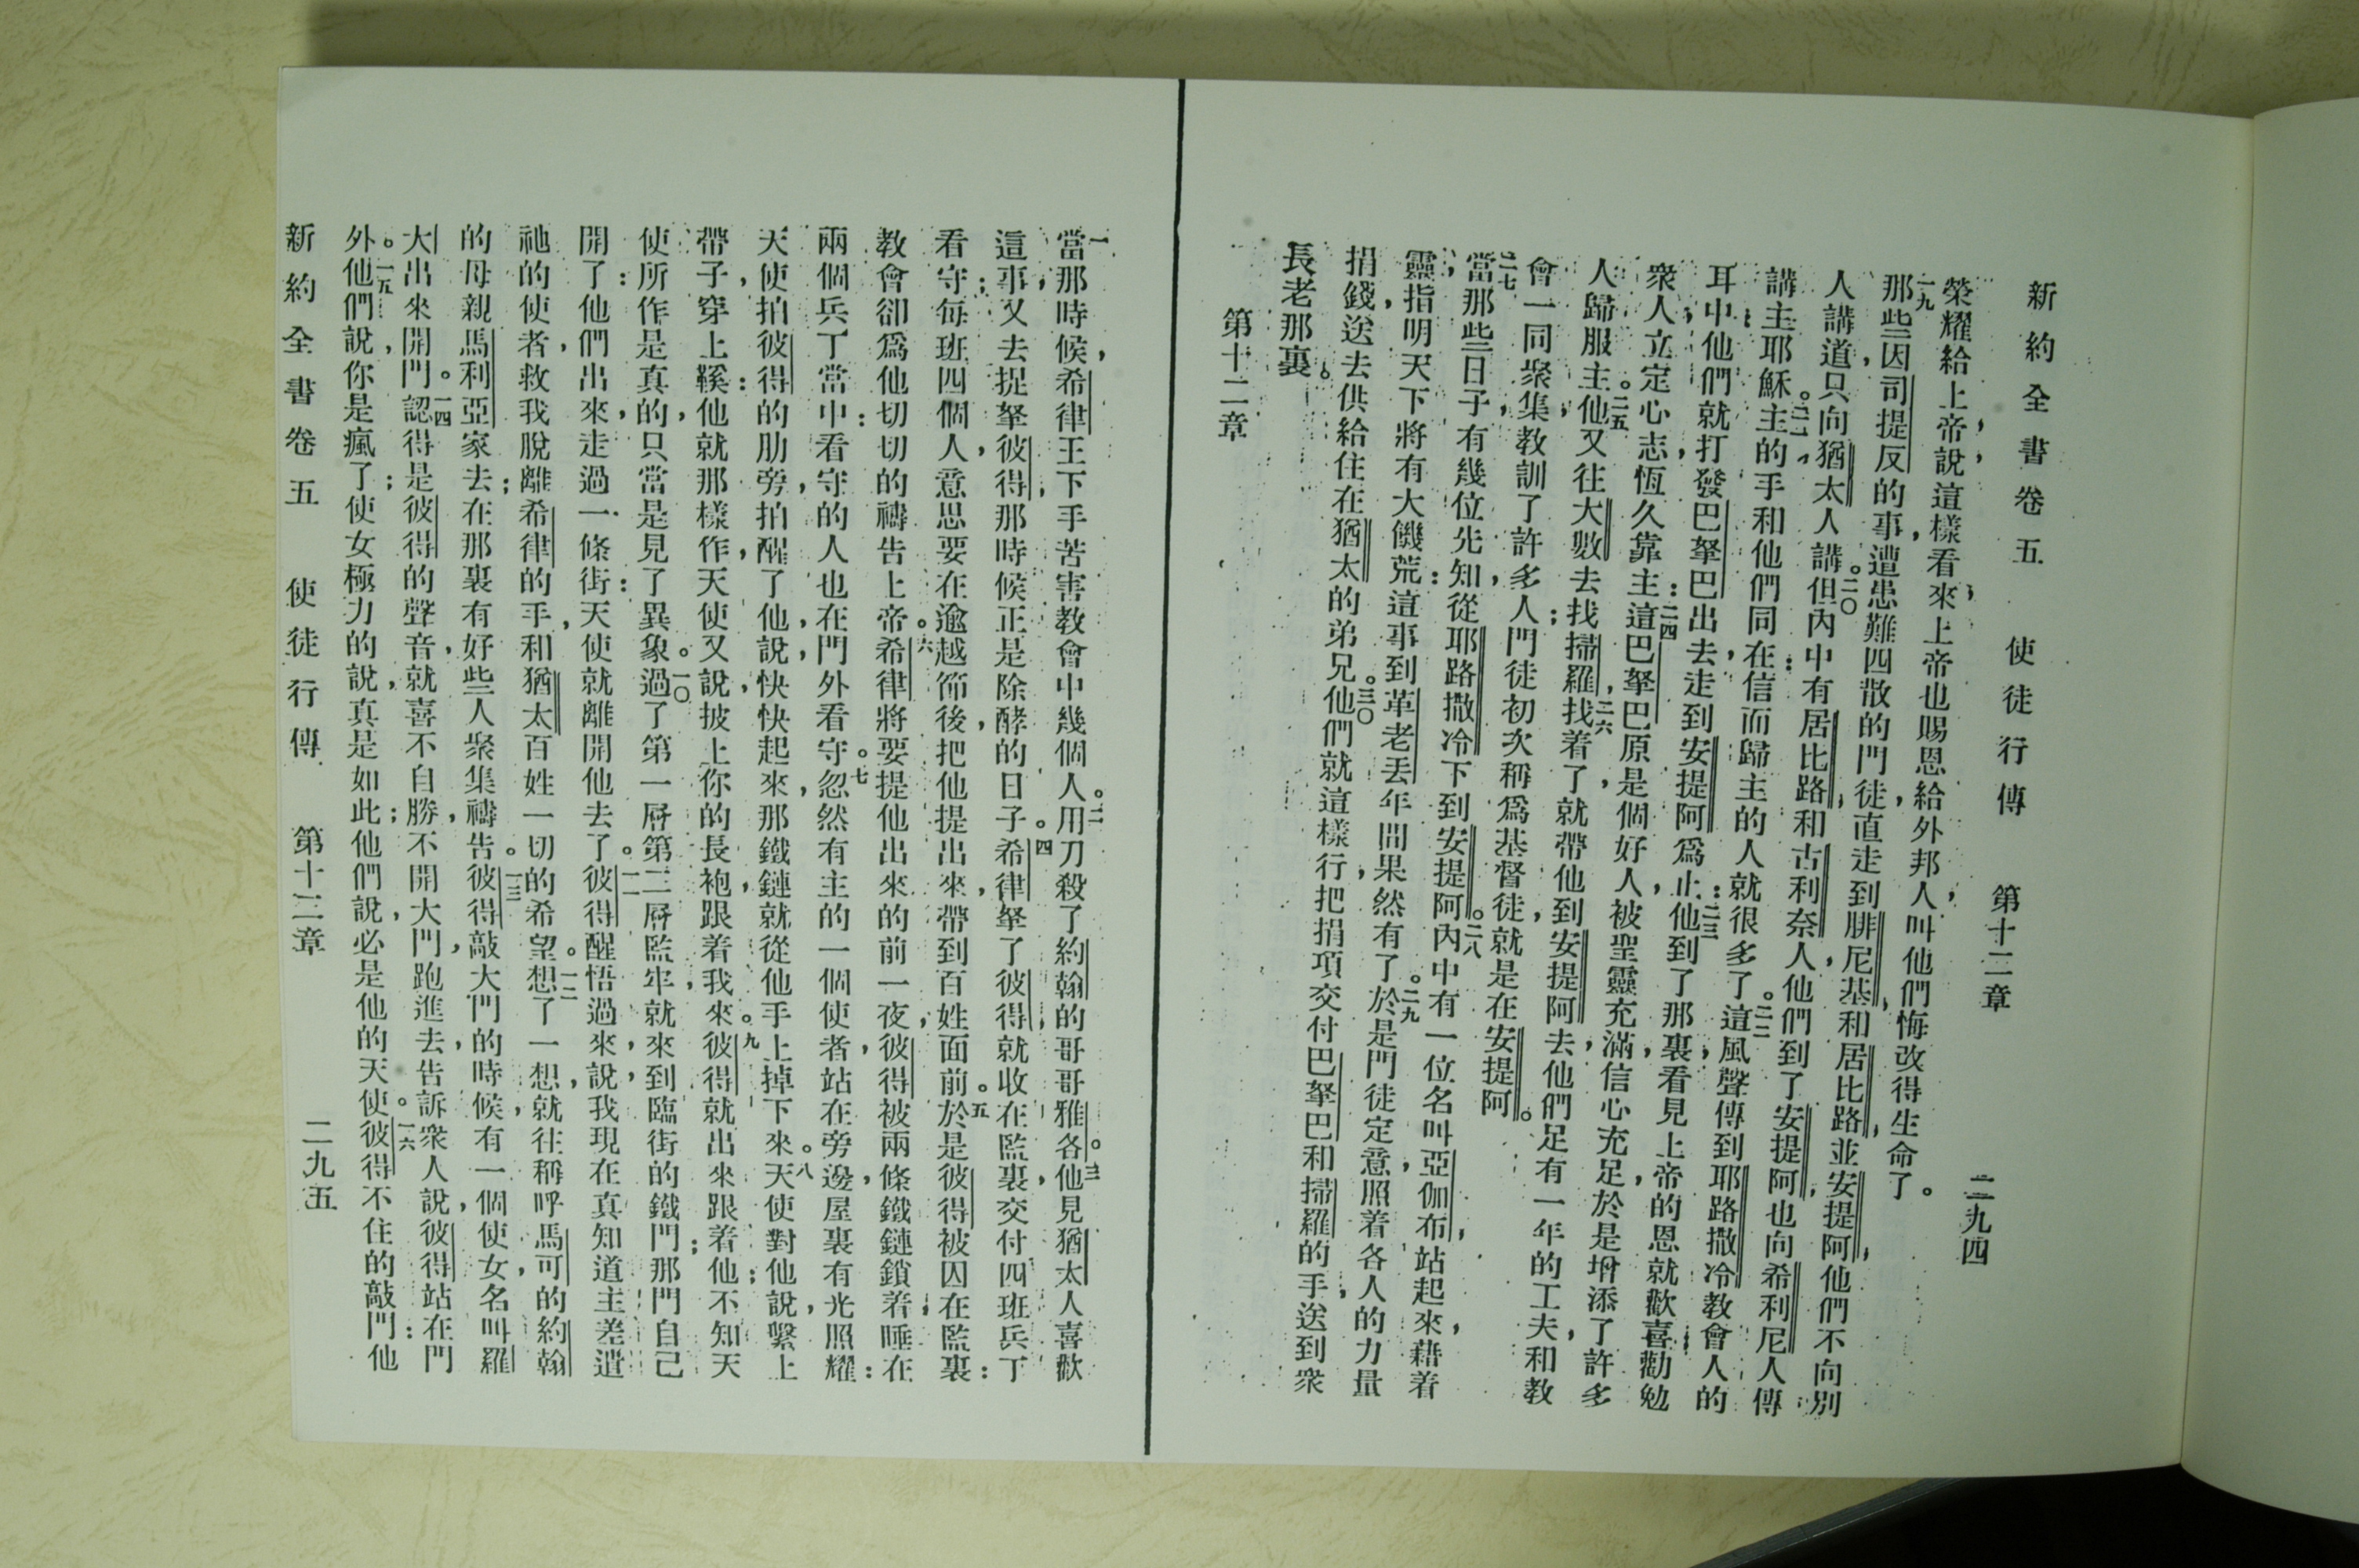 新約全書卷五　使徒行傳　第十二章　二九四
榮耀給上帝，說，這樣看來，上帝也賜恩給外邦人，叫他們悔改得生命了。
一九那些因司提反的事，遭患難四散的門徒，直走到腓尼基，和居比路，並安提阿，他們不向別
人講道，只向猶太人講。二〇但內中有居比路，和古利奈人，他們到了安提阿，也向希利尼人傳
講主耶穌。二一主的手和他們同在：信而歸主的人就很多了。二二這風聲傳到耶路撒冷教會人的
耳中，他們就打發巴拏巴出去，走到安提阿爲止：二三他到了那裏，看見上帝的恩就歡喜，勸勉
衆人，立定心志，恆久靠主：二四這巴拏巴原是個好人，被聖靈充滿，信心充足，於是增添了許多
人歸服主。二五他又往大數去找掃羅，二六找着了，就帶他到安提阿去，他們足有一年的工夫，和教
會一同聚集，教訓了許多人；門徒初次稱爲基督徒，就是在安提阿。
二七當那些日子，有幾位先知，從耶路撒冷下到安提阿。二八內中有一位名叫亞伽布，站起來，藉着
靈，指明天下將有大饑荒：這事到革老丟年間果然有了。二九於是門徒定意，照着各人的力量
捐錢，送去供給住在猶太的弟兄。三〇他們就這樣行，把捐項交付巴拏巴和掃羅的手，送到衆
長老那裏。
第十二章
一當那時候，希律王下手苦害教會中幾個人。二用刀殺了約翰的哥哥雅各。三他見猶太人喜歡
這事，又去捉拏彼得，那時候正是除酵的日子。四希律拏了彼得，就收在監裏，交付四班兵丁
看守；每班四個人，意思要在逾越節後，把他提出來，帶到百姓面前。五於是彼得被囚在監裏：
教會卻爲他切切的禱告上帝。六希律將要提他出來的前一夜，彼得被兩條鐵鏈鎖着，睡在
兩個兵丁當中：看守的人也在門外看守。七忽然有主的一個使者，站在旁邊，屋裏有光照耀：
天使拍彼得的肋旁，拍醒了他，說，快快起來，那鐵鏈就從他手上掉下來。八天使對他說，繫上
帶子，穿上鞵：他就那樣作，天使又說，披上你的長袍，跟着我來。九彼得就出來跟着他；不知天
使所作是真的，只當是見了異象。一〇過了第一層第二層監牢，就來到臨街的鐵門；那門自己
開了：他們出來，走過一條街：天使就離開他去了。一一彼得醒悟過來，說，我現在真知道主差遣
祂的使者，救我脫離希律的手，和猶太百姓一切的希望。一二想了一想，就往稱呼馬可的約翰
的母親馬利亞家去；在那裏有好些人聚集禱告。一三彼得敲大門的時候，有一個使女，名叫羅
大，出來開門。一四認得是彼得的聲音，就喜不自勝，不開大門，跑進去告訴衆人，說，彼得站在門
外。一五他們說，你是瘋了；使女極力的說，真是如此；他們說，必是他的天使。一六彼得不住的敲門：他
新約全書卷五　使徒行傳　第十二章　二九五